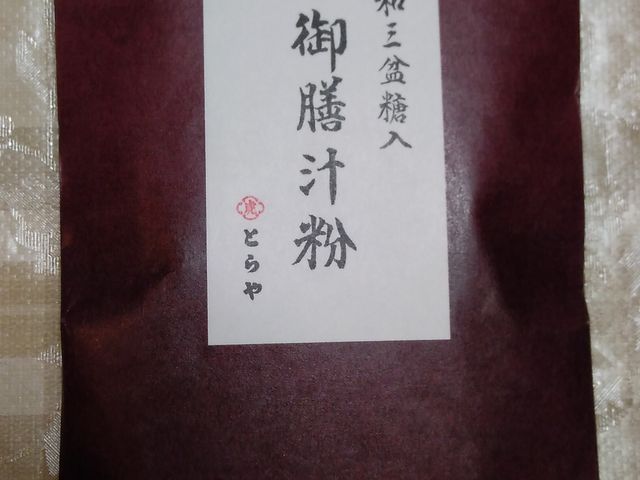 和三盆糖入
御膳汁粉
虎
とらや